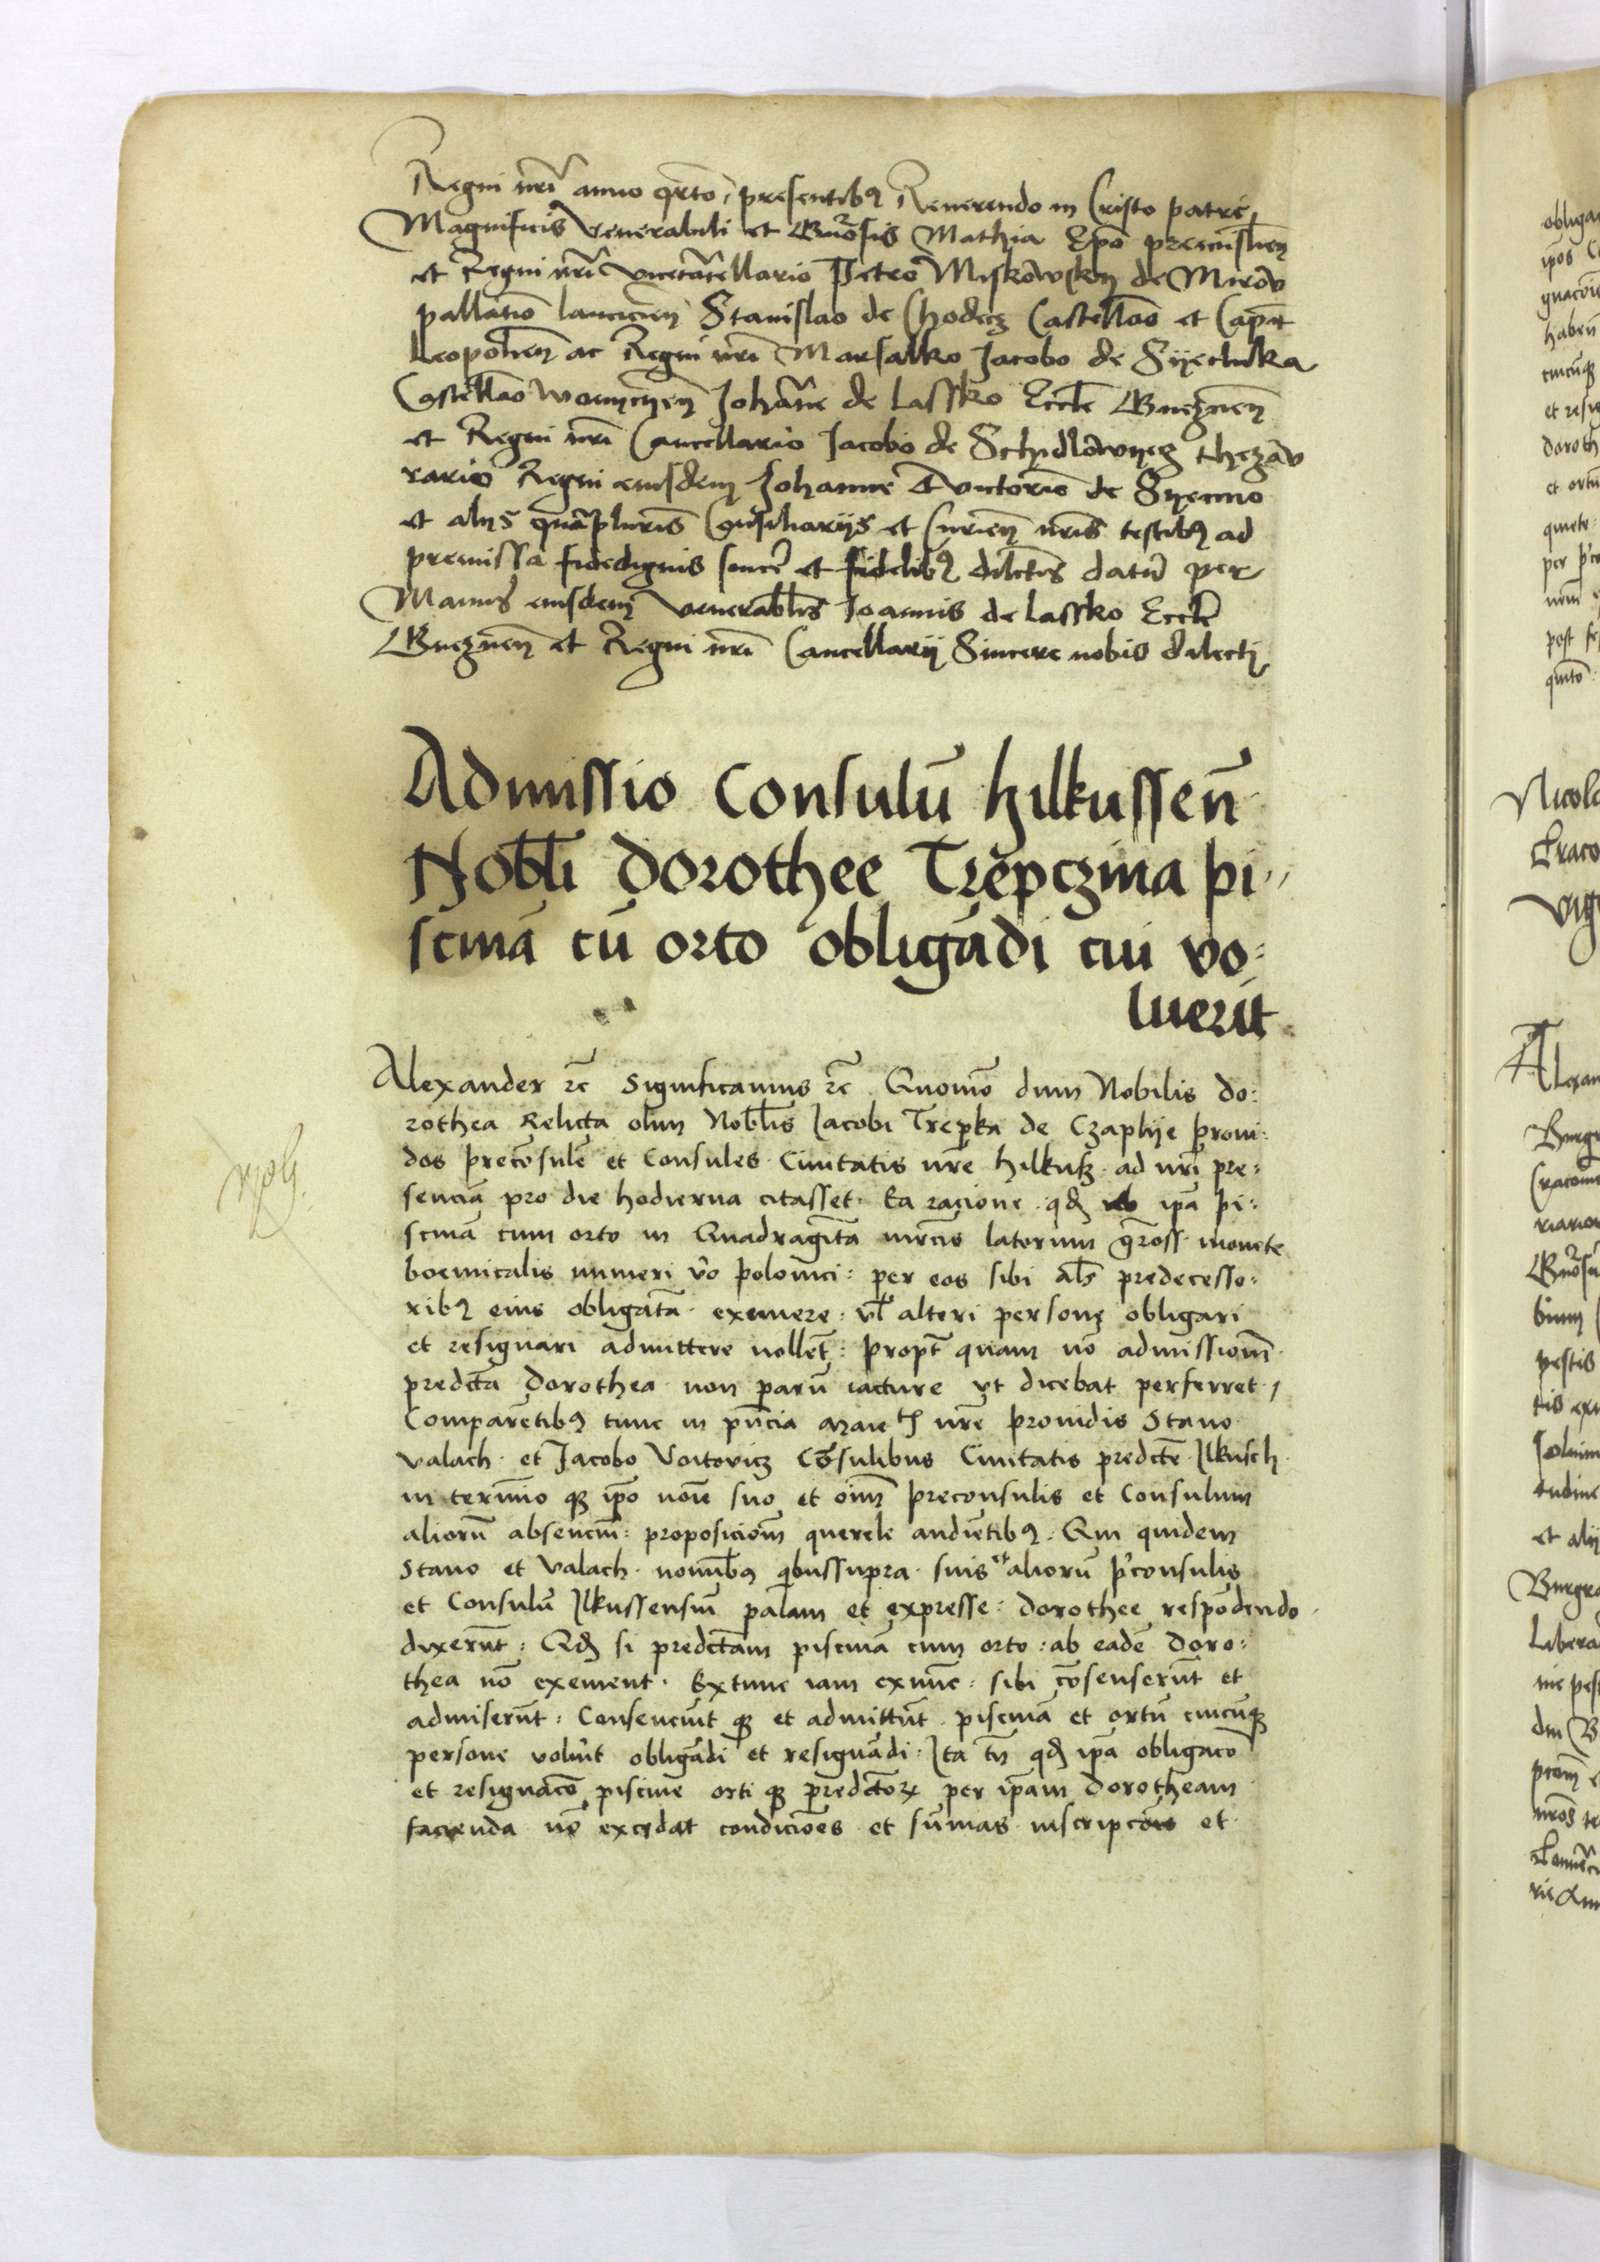 Regni nrī anno qrto, presentibꝰ Reuerendo in Cristo patre
Magnificis Venerabili et Gnōsis Mathia Epō premislien̄
et Regni nrī vicecācellario Petro Miskowsky de Mirow
pallatiō lancicien̄ Stanislao de Chodecz Castellāo et Capit
Leopolien̄ ac Regni nrī Marsalko Jacobo de Syecluka
Castellāo woynicien̄ Johāne de Lassko Eccle Gnezneñ
et Regni nrī Cancellario Jacobo de Schidlowyecz thezau
rario Regni eiusdem Johanne de Syenno
et alijs quāplurīs Consiliarijs et Curieñ nrīs testibꝰ ad
premissa fidedignis sincē et fidelibꝰ dilectis datū per
Manus eiusdem venerabilis Joannis de Lassko Eccle
Gnezneñ et Regni nrī Cancellarij Sincere nobis dilecti
Admissio Consulū hilkusseñ
Nobli dorothee Trepczina pi-
scinā cū orto obligādi cui vo-
luerit
Alexander ꝛc Significamus ꝛc Quomō dum Nobilis do:
rothea Relicta olim Noblis Jacobi Trepka de Czaplye proui:
dos precōsulē et Consules Ciuitatis nre hilkusz ad nrī pre:
senciā pro die hodierna citasset. Ea racione qđ ipā pi:
scinā cum orto in Quadragīta mrcis latorum gross monete
boemicalis numeri vo polonici: per eos sibi als predecesso:
ribꝰ eius obligatā exemere: vl alteri persone obligari
et resignari admittere nollēt: propt quam nō admissionē
predctā dorothea non parū iacture vt dicebat perferret,
Comparētibꝰ tunc in pñcia nre prouidis Stano
valach et Jacobo Voitovicz Cōsulibus Ciuitatis predcte Ilkusch
in termīo qz ipō noīe suo et oīm preconsulis et Consulum
aliorū absenciū: proposicionē querele audiētibꝰ. Qui quidem
Stano et Valach noīibꝰ qbussupra suis et aliorū pconsulis
et Consulū Ilkussensiū palam et expresse: dorothee respōdendo
dixerūt: Qđ si predctam piscinā cum orto: ab eadē doro:
thea nō exement. Extunc iam exnūc: sibi cōsenserūt et
admiserūt: Consenciūt qz et admittūt piscinā et ortū cuicūqz
persone voluīt obligādi et resignādi: Ita tn qđ ipā obligacō
et resignacō piscine orti qz predctorꝝ per ipam dorotheam
facienda nō excedat condicōes et sūmas inscripcōis et